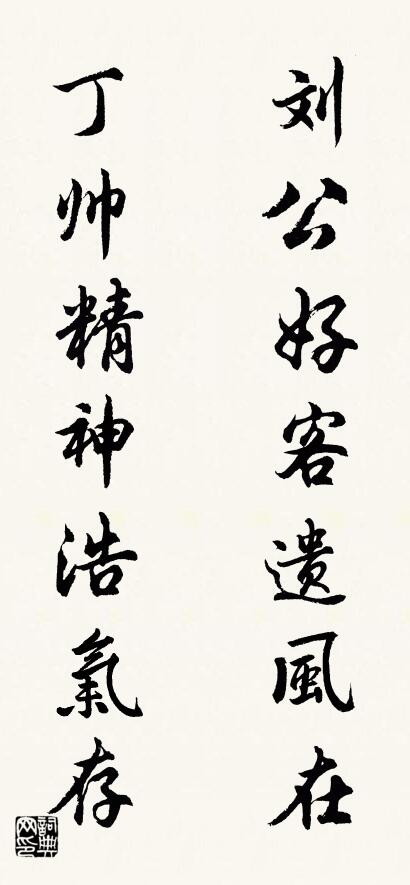 刘公好客遗風在
丁帅精神浩氣存
詞典网印